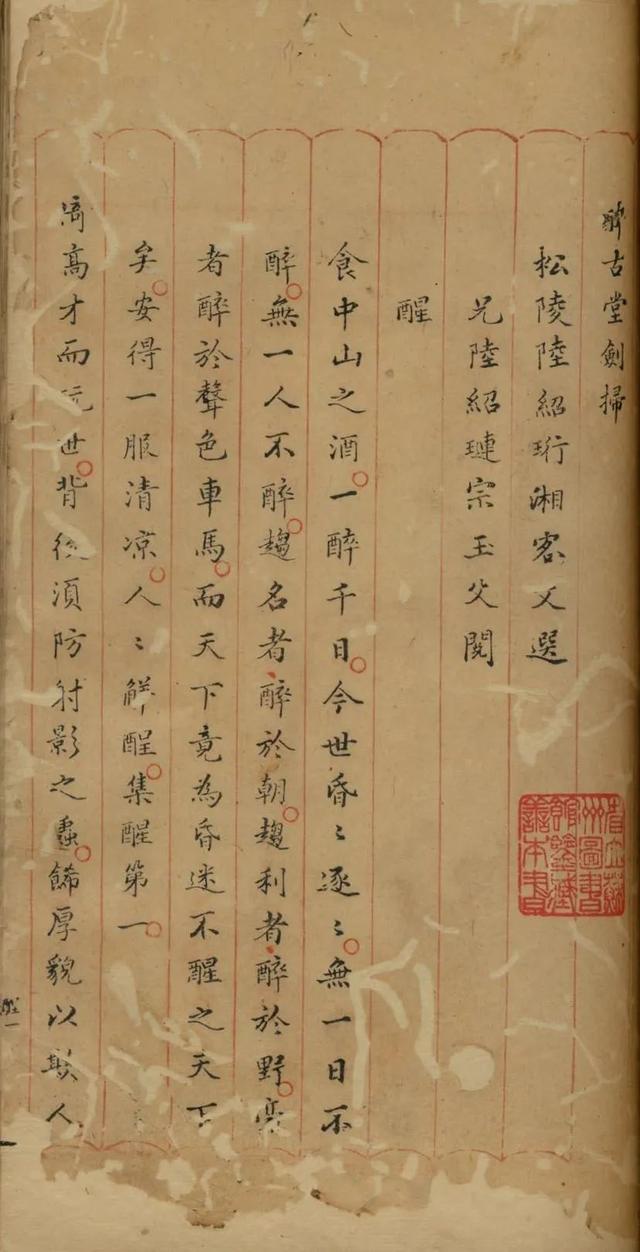 醉古堂劍掃
松陵陸紹珩湘客父選
兄陸紹璉宗玉父閱
醒
食中山之酒一醉千日今世昏〻逐〻無一日不
醉無一人不醉趨名者醉於朝趨利者醉於野豪
者醉於聲色車馬而天下竟為昏迷不醒之天下
矣安得一服清凉人〻解酲集醒第一
倚高才而玩世背後須防射影之蟲飾厚貌以欺人